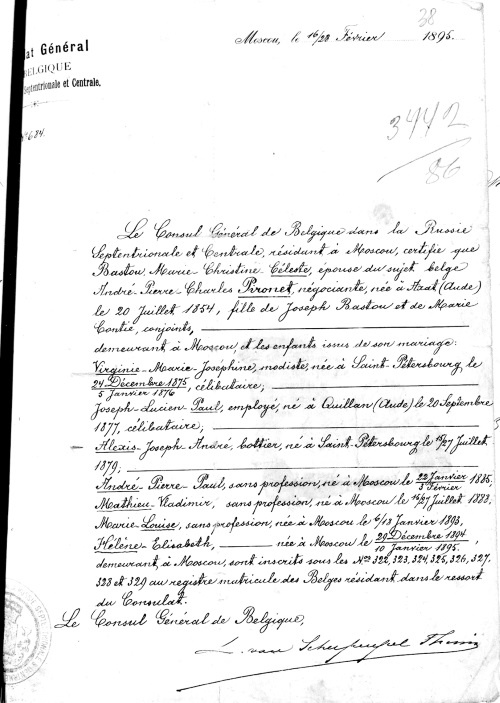 38
Moscou, le 16/28 Février 1895.
at Général
BELGIQUE
Septentrionale et Centrale.
No 684.
3442
86
Le Consul Général de Belgique dans la Russie
Septentrionale et Centrale, résidant à Moscou, certifie que
Bastou, Marie-Christine-Céleste, épouse du sujet belge
André-Pierre-Charles Pironet, négociante, née à Axat (Aude)
le 20 Juillet 1854, fille de Joseph Bastou et de Marie
Contié, conjoints,
demeurant à Moscou, et les enfants issus de son mariage:
Virginie-Marie-Josephine, modiste, née à Saint-Pétersbourg, le
24 Décembre 1875
5 Janvier 1876, célibataire;
Joseph-Lucien-Paul, employé, né à Quillan (Aude) le 20 Septembre
1877, célibataire;
Alexis-Joseph-André, bottier, né à Saint-Pétersbourg le 15/27 Juillet
1879;
André-Pierre-Paul, sans profession, né à Moscou le 22 Janvier
3 Février 1885,
Mathieu-Vladimir, sans profession, né à Moscou le 15/27 Juillet 1888,
Marie-Louise, sans profession, née à Moscou le 6/18 Janvier 1893,
Hélène-Elisabeth, née à Moscou le 29 Décembre 1894
10 Janvier 1895.
demeurant, à Moscou, sont inscrits sous les Nos 322, 323, 324, 325, 326, 327,
328 et 329 au registre matricule des Belges résidant dans le ressort
du Consulat.
Le Consul Général de Belgique,
L. van